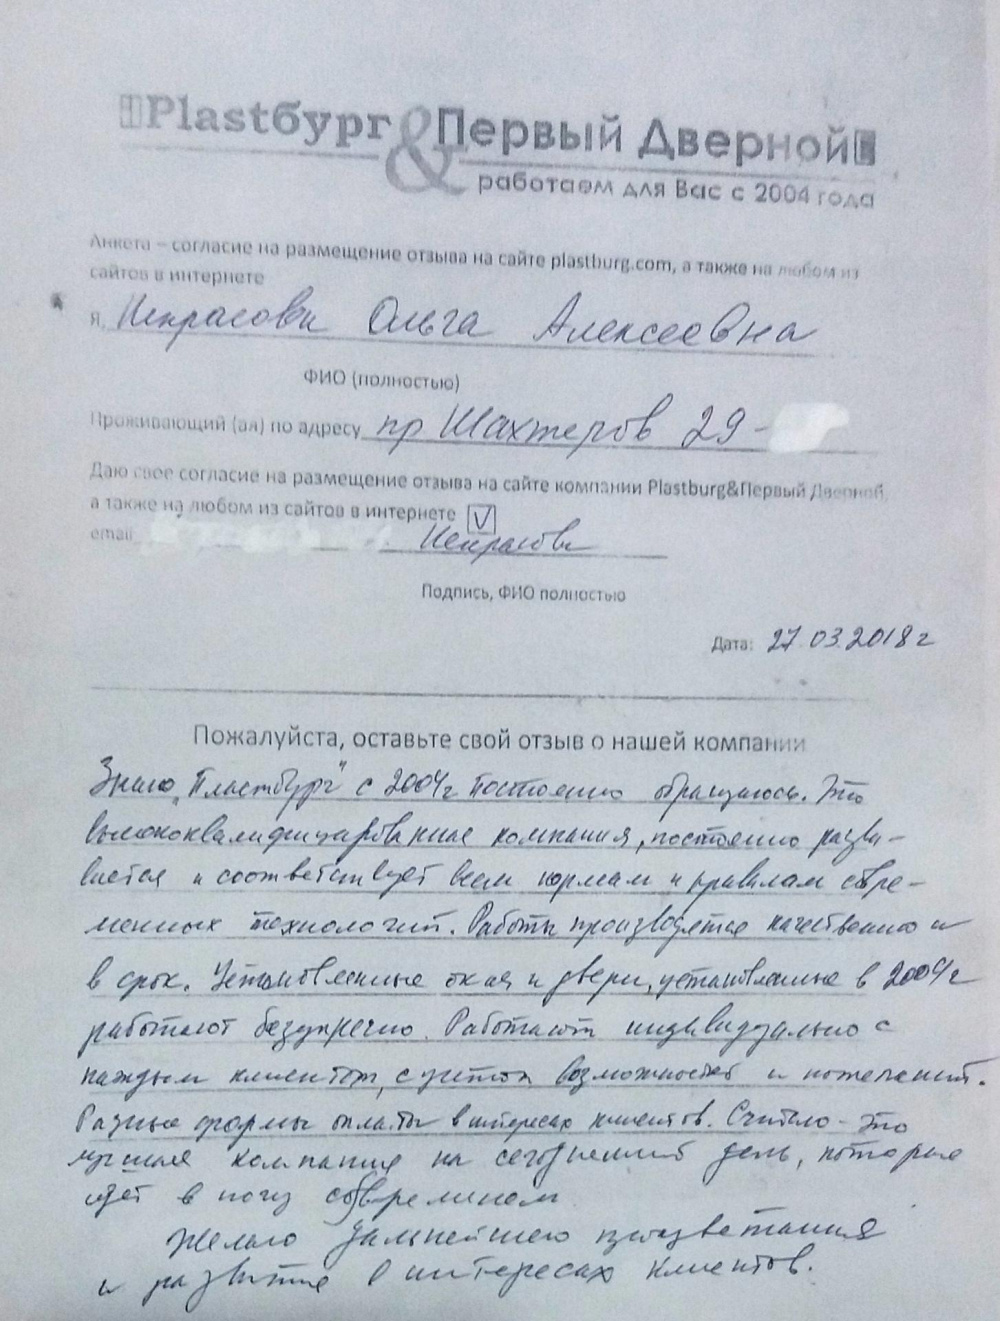 Plastбург & Первый Дверной
работаем для Вас с 2004 года
Анкета – согласие на размещение отзыва на сайте plastburg.com, а также на любом из
сайтов в интернете
Я, Некрасова Ольга Алексеевна
ФИО (полностью)
Проживающий (ая) по адресу пр Шахтеров 29-
Даю свое согласие на размещение отзыва на сайте компании Plastburg&Первый Дверной,
а также на любом из сайтов в интернете V
email Некрасова
Подпись, ФИО полностью
Дата: 27.03.2018г
Пожалуйста, оставьте свой отзыв о нашей компании
Знаю „Пластбург" с 2004г постоянно обращаюсь. Это
высококвалифицированная компания, постоянно разви-
вается и соответствует всем нормам и правилам совре-
менных технологий. Работы производятся качественно и
в срок. Установленные окна и двери, установленные в 2004г
работают безупречно. Работают индивидуально с
каждым клиентом, с учетом возможностей и пожеланий.
Разные формы оплаты в интересах клиентов. Считаю - это
лучшая компания на сегодняшний день, которая
идет в ногу со временем
Желаю дальнейшего процветания
и развития в интересах клиентов.